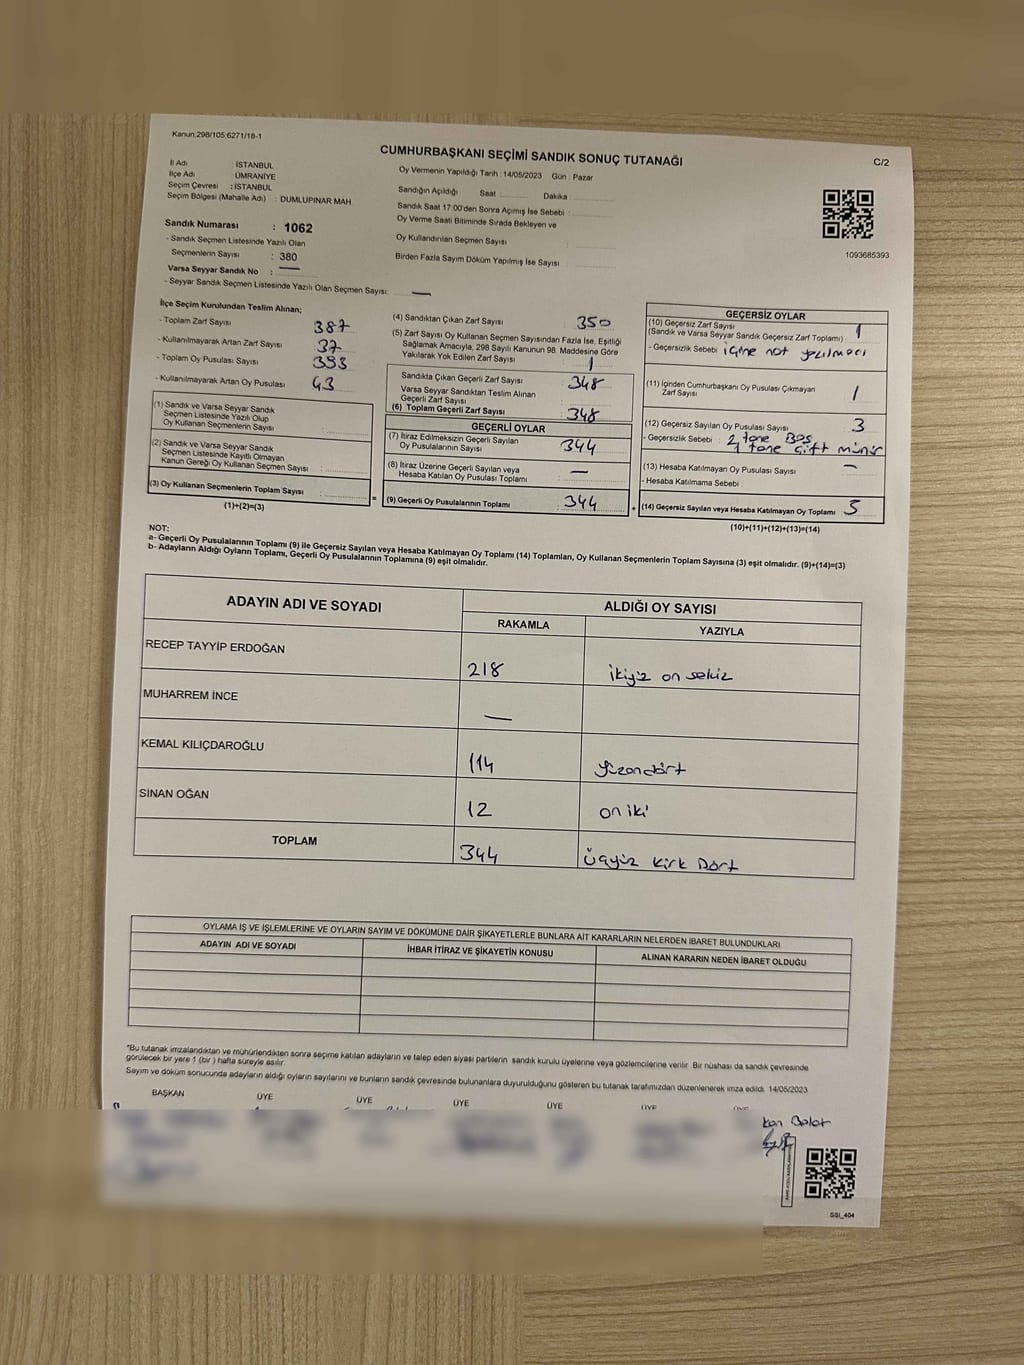 Kanun:298/105,6271/18-1
CUMHURBAŞKANI SEÇİMİ SANDIK SONUÇ TUTANAĞI
C/2
İl Adı : İSTANBUL
İlçe Adı : ÜMRANİYE
Seçim Çevresi : İSTANBUL
Seçim Bölgesi (Mahalle Adı) : DUMLUPINAR MAH.
Oy Vermenin Yapıldığı Tarih : 14/05/2023 Gün : Pazar
Sandığın Açıldığı Saat : Dakika :
Sandık Saat 17:00'den Sonra Açımış İse Sebebi :
Oy Verme Saati Bitiminde Sırada Bekleyen ve
Oy Kullandırılan Seçmen Sayısı :
Birden Fazla Sayım Döküm Yapılmış İse Sayısı :
1093685393
Sandık Numarası : 1062
- Sandık Seçmen Listesinde Yazılı Olan
Seçmenlerin Sayısı : 380
Varsa Seyyar Sandık No : —
- Seyyar Sandık Seçmen Listesinde Yazılı Olan Seçmen Sayısı: —
İlçe Seçim Kurulundan Teslim Alınan;
- Toplam Zarf Sayısı 387
- Kullanılmayarak Artan Zarf Sayısı 37
- Toplam Oy Pusulası Sayısı 393
- Kullanılmayarak Artan Oy Pusulası 43
(1) Sandık ve Varsa Seyyar Sandık
Seçmen Listesinde Yazılı Olup
Oy Kullanan Seçmenlerin Sayısı :
(2) Sandık ve Varsa Seyyar Sandık
Seçmen Listesinde Kayıtlı Olmayan
Kanun Gereği Oy Kullanan Seçmen Sayısı :
(3) Oy Kullanan Seçmenlerin Toplam Sayısı :
(1)+(2)=(3)
(4) Sandıktan Çıkan Zarf Sayısı 350
(5) Zarf Sayısı Oy Kullanan Seçmen Sayısından Fazla İse, Eşitliği
Sağlamak Amacıyla, 298 Sayılı Kanunun 98. Maddesine Göre
Yakılarak Yok Edilen Zarf Sayısı 1
Sandıkta Çıkan Geçerli Zarf Sayısı 348
Varsa Seyyar Sandıktan Teslim Alınan
Geçerli Zarf Sayısı
(6) Toplam Geçerli Zarf Sayısı 348
GEÇERLİ OYLAR
(7) İtiraz Edilmeksizin Geçerli Sayılan
Oy Pusulalarının Sayısı 344
(8) İtiraz Üzerine Geçerli Sayılan veya
Hesaba Katılan Oy Pusulası Toplamı —
= (9) Geçerli Oy Pusulalarının Toplamı 344 +
GEÇERSİZ OYLAR
(10) Geçersiz Zarf Sayısı
(Sandık ve Varsa Seyyar Sandık Geçersiz Zarf Toplamı) 1
- Geçersizlik Sebebi : içine not yazılması
(11) İçinden Cumhurbaşkanı Oy Pusulası Çıkmayan
Zarf Sayısı 1
(12) Geçersiz Sayılan Oy Pusulası Sayısı 3
- Geçersizlik Sebebi : 2 tane Boş
1 tane çift mühür
(13) Hesaba Katılmayan Oy Pusulası Sayısı —
- Hesaba Katılmama Sebebi :
(14) Geçersiz Sayılan veya Hesaba Katılmayan Oy Toplamı 5
(10)+(11)+(12)+(13)=(14)
NOT:
a- Geçerli Oy Pusulalarının Toplamı (9) ile Geçersiz Sayılan veya Hesaba Katılmayan Oy Toplamı (14) Toplamları, Oy Kullanan Seçmenlerin Toplam Sayısına (3) eşit olmalıdır. (9)+(14)=(3)
b- Adayların Aldığı Oyların Toplamı, Geçerli Oy Pusulalarının Toplamına (9) eşit olmalıdır.
ADAYIN ADI VE SOYADI
ALDIĞI OY SAYISI
RAKAMLA YAZIYLA
RECEP TAYYİP ERDOĞAN 218 ikiyüz on sekiz
MUHARREM İNCE —
KEMAL KILIÇDAROĞLU 114 yüzondört
SİNAN OĞAN 12 on iki
TOPLAM 344 Üçyüz kırk Dört
OYLAMA İŞ VE İŞLEMLERİNE VE OYLARIN SAYIM VE DÖKÜMÜNE DAİR ŞİKAYETLERLE BUNLARA AİT KARARLARIN NELERDEN İBARET BULUNDUKLARI
ADAYIN ADI VE SOYADI İHBAR İTİRAZ VE ŞİKAYETİN KONUSU ALINAN KARARIN NEDEN İBARET OLDUĞU
*Bu tutanak imzalandıktan ve mühürlendikten sonra seçime katılan adayların ve talep eden siyasi partilerin sandık kurulu üyelerine veya gözlemcilerine verilir. Bir nüshası da sandık çevresinde
görülecek bir yere 1 (bir ) hafta süreyle asılır.
Sayım ve döküm sonucunda adayların aldığı oyların sayılarını ve bunların sandık çevresinde bulunanlara duyurulduğunu gösteren bu tutanak tarafımızdan düzenlenerek imza edildi. 14/05/2023
BAŞKAN ÜYE ÜYE ÜYE ÜYE ÜYE ÜYE
SSI_404